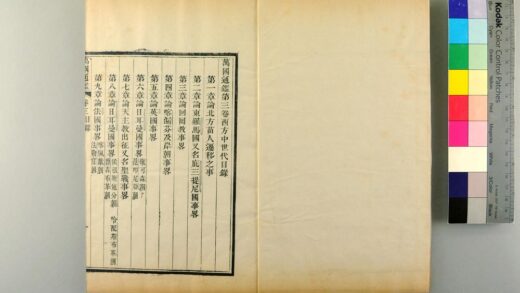 萬國通鑑第三卷西方中世代目錄
第一章論北方苗人遷移之事
第二章論東羅馬國又名庇三提尼國事畧
第三章論回回教事畧
第四章論及岸朝事畧
第五章論英國事畧
第六章論日耳曼國事畧
第七章論天主教出征又名聖戰事畧
第八章論日耳曼國事畧
第九章論法國事畧
萬國通鑑 卷三目錄
Kodak Color Control Patches
Cyan
Green
Yellow
Red
Magenta
White